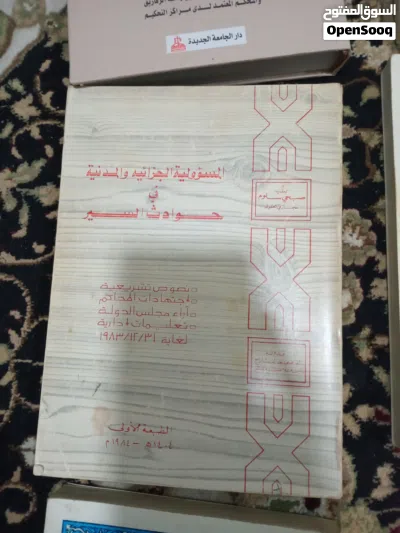 والمحكم المعتمد لدى مراكز التحكيم
دار الجامعة الجديدة
السوق المفتوح
OpenSooq
المسؤولية الجزائية والمدنية
في
حوادث السير
نصوص تشريعية
واجتهادات المحاكم
وآراء مجلس الدولة
وتعليمات ادارية
لغاية ١٩٨٣/١٢/٣١
الطبعة الأولى
١٤٠٤ هـ - ١٩٨٤ م